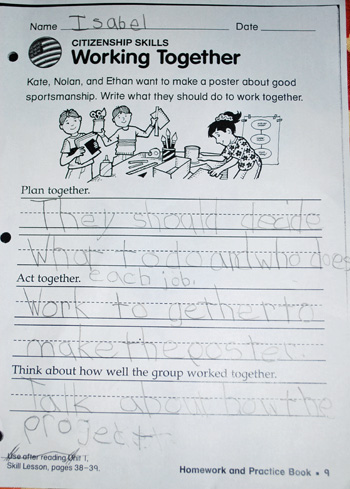 Name Isabel Date
CITIZENSHIP SKILLS
Working Together
Kate, Nolan, and Ethan want to make a poster about good
sportsmanship. Write what they should do to work together.
Plan together.
They should decide
What to do and who does
each job.
Act together.
Work to gether to
make the poster.
Think about how well the group worked together.
Talk about how the
project
Use after reading Unit 1,
Skill Lesson, pages 38–39.
Homework and Practice Book • 9